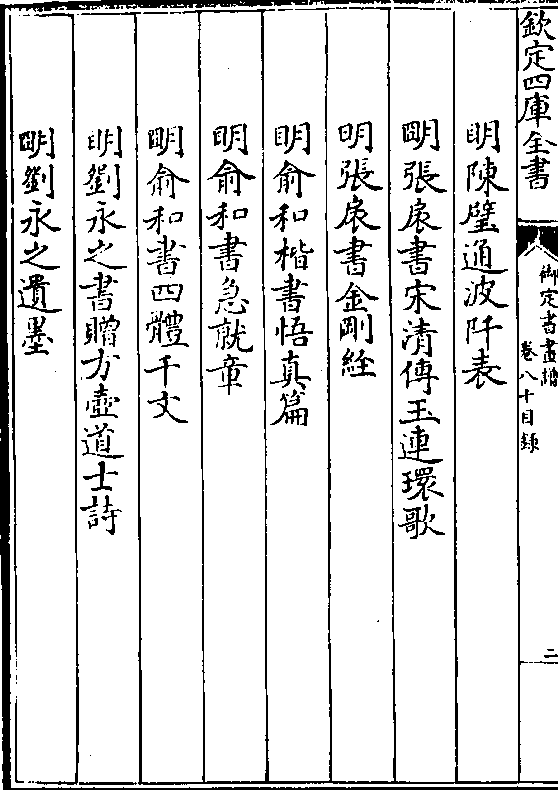 欽定四庫全書
御定書畫譜
卷八十目錄
二
明陳璧通波阡表
明張㡳書宋清傳玉連環歌
明張㡳書金剛經
明俞和楷書悟真篇
明俞和書急就章
明俞和書四體千文
明劉永之書贈方壺道士詩
明劉永之遺墨